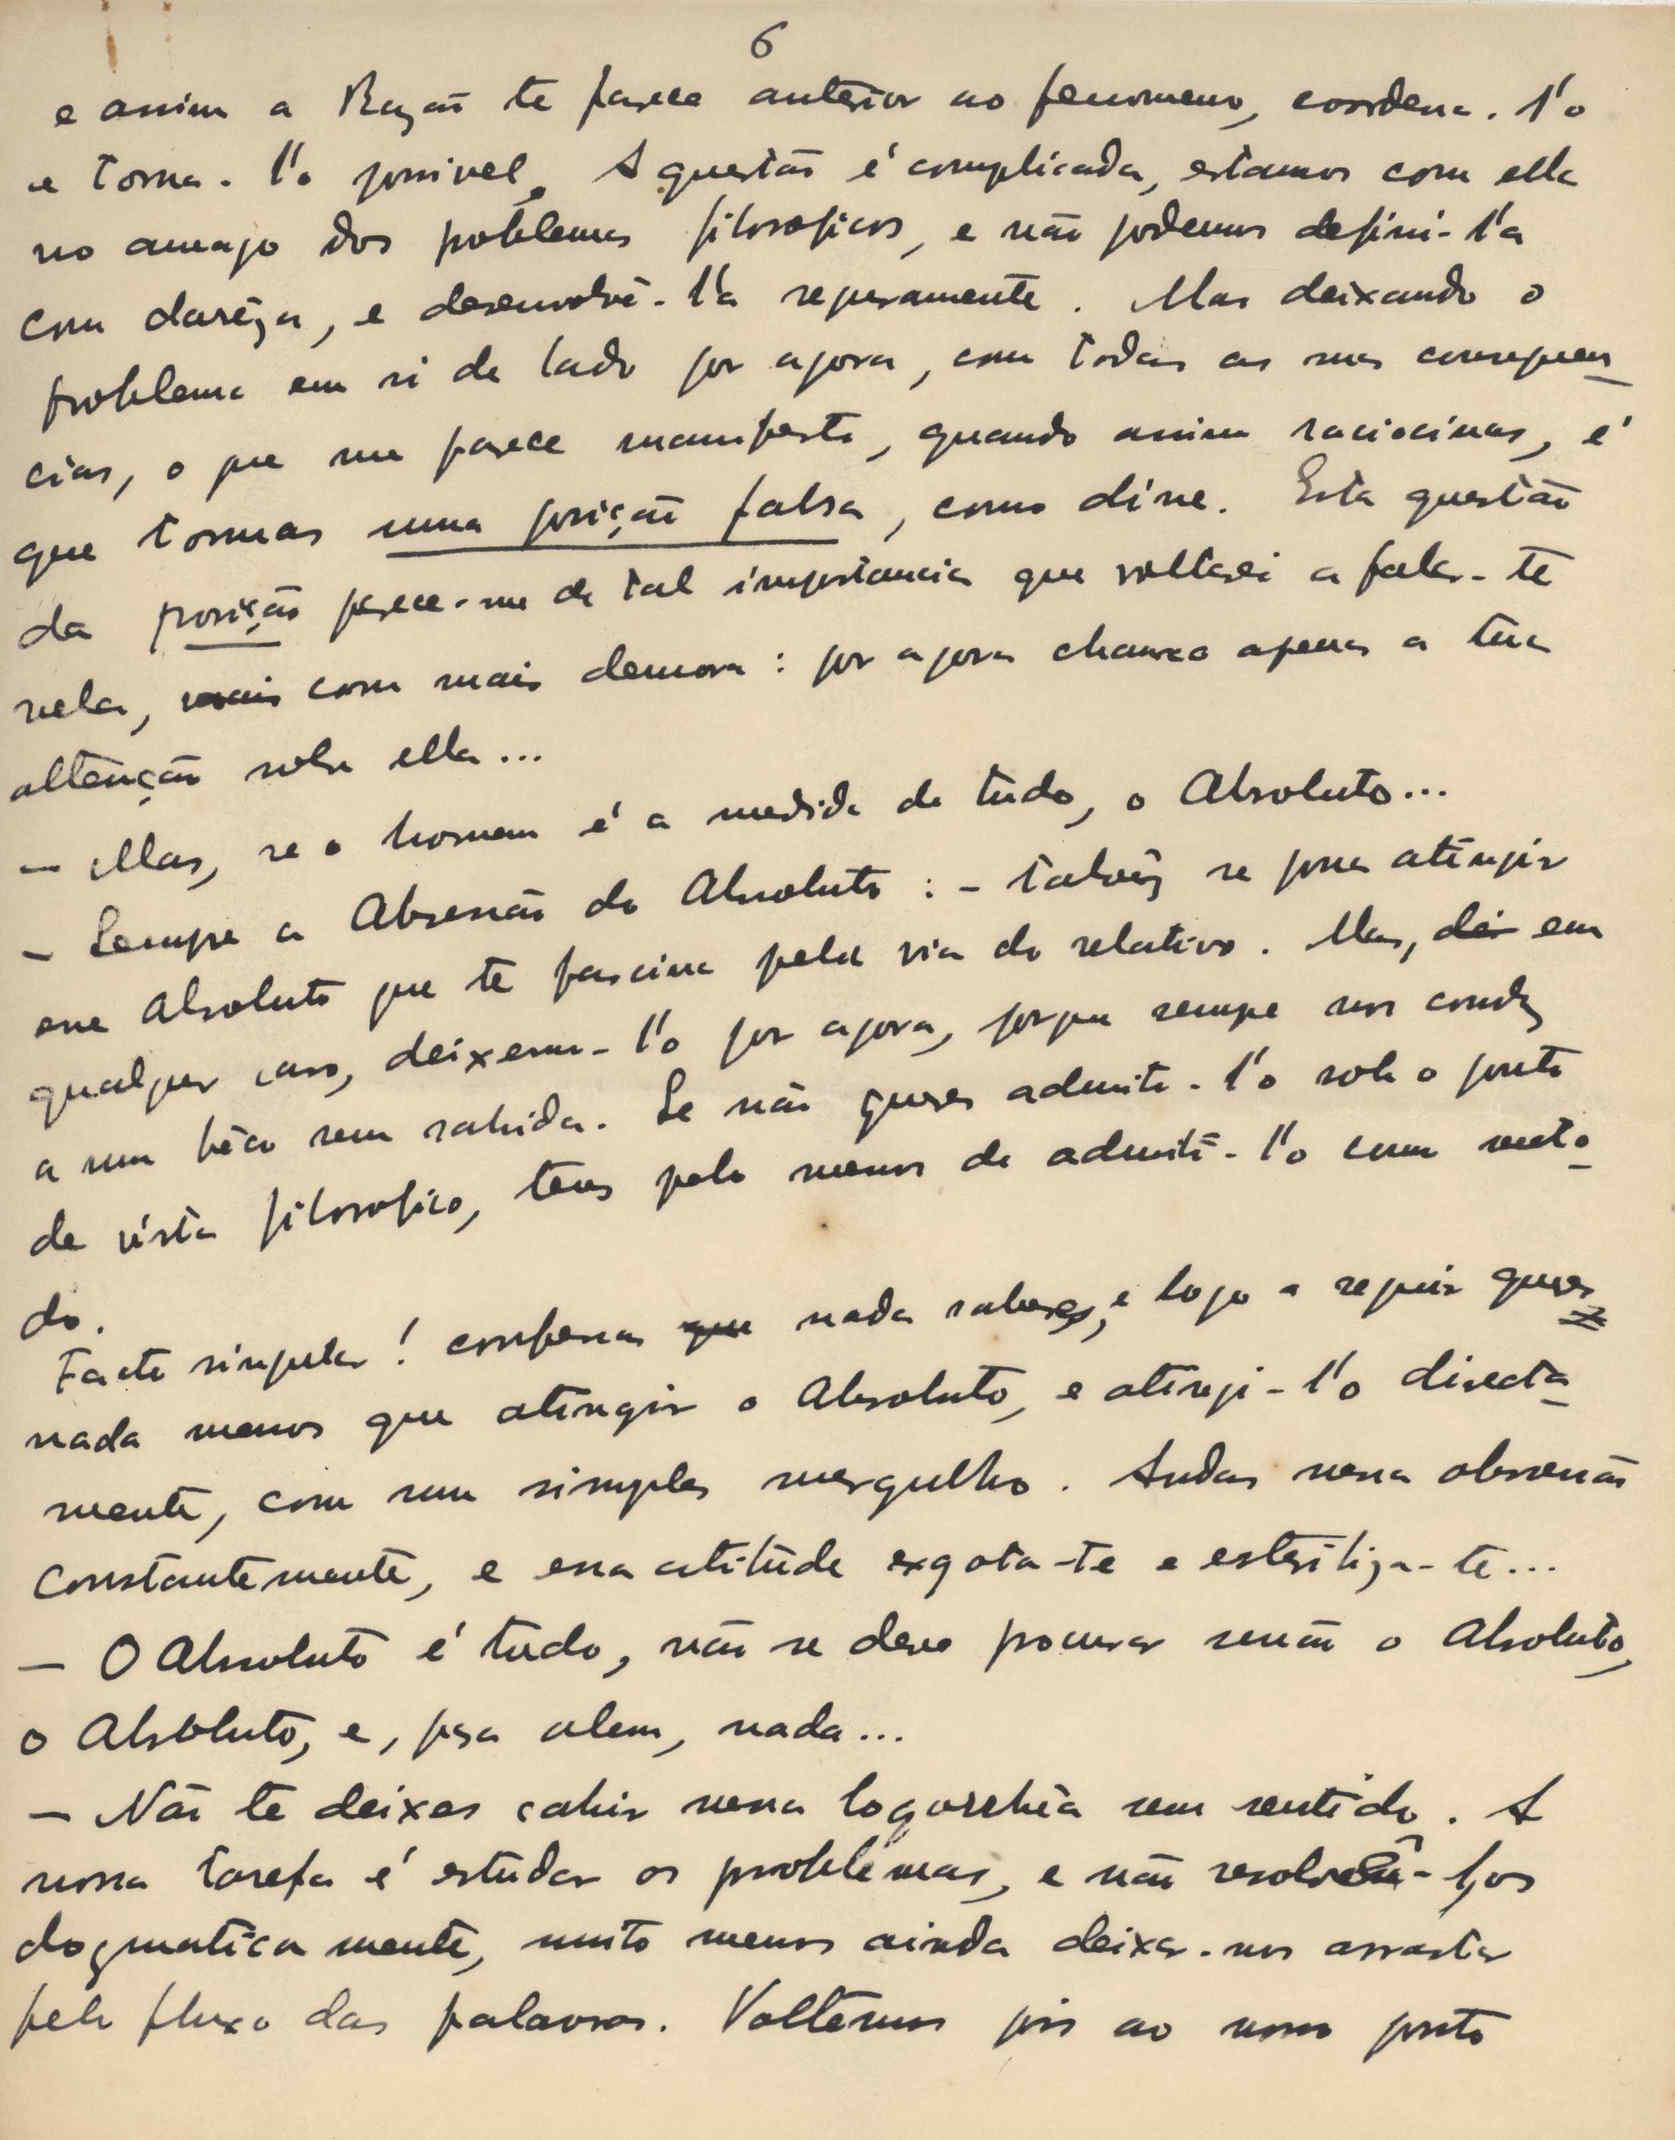 6
e assim a Razão te parece anterior ao fenomeno, coordena-l'o
e torna-l'o possivel. A questão é complicada, estamos com ella
no amago dos problemas filosoficos, e não podemos defini-l'a
com clarêza, e desenvolvê-l'a seguramente. Mas deixando o
problema em si de lado por agora, com todas as suas consequen-
cias, o que me parece manifesto, quando assim raciocinas, é
que tomas uma posição falsa, como disse. Esta questão
da posição parece-me de tal importancia que voltarei a falar-te
nela, mais com mais demora: por agora chamo apenas a tua
attenção sobre ella...
— Mas, se o homem é a medida de tudo, o Absoluto...
— Sempre a Obsessão do Absoluto: - talvêz se possa atingir
esse Absoluto que te fascina pela via do relativo. Mas, dei em
qualquer caso, deixemo-l'o por agora, porque sempre nos conduz
a um bêco sem sahida. Se não queres admiti-l'o sob o ponto
de vista filosofico, tens pelo menos de admiti-l'o como meto-
do.
Facto singular! confessas que nada saberes, e logo a seguir queres
nada menos que atingir o Absoluto, e atingi-l'o directa-
mente, com um simples mergulho. Andas nessa obsessão
constantemente, e essa atitude exgota-te e esteriliza-te...
— O Absoluto é tudo, não se deve procurar senão o Absoluto,
o Absoluto, e, pra alem, nada...
— Não te deixes cahir nessa logorrhêa sem sentido. A
nossa tarefa é estudar os problêmas, e não resolvê-l'os
dogmaticamente, muito menos ainda deixar-nos arrastar
pelo fluxo das palavras. Voltêmos pois ao nosso ponto